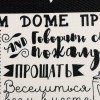 М DOME ПР
AND Говорить с
пожалу
ПРОЩАТЬ
Веселиться